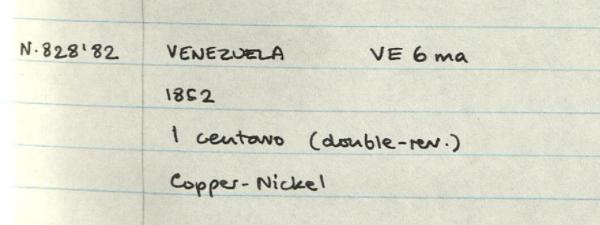 N.828'82 VENEZUELA VE 6 ma
1852
1 centavo (double-rev.)
Copper-Nickel